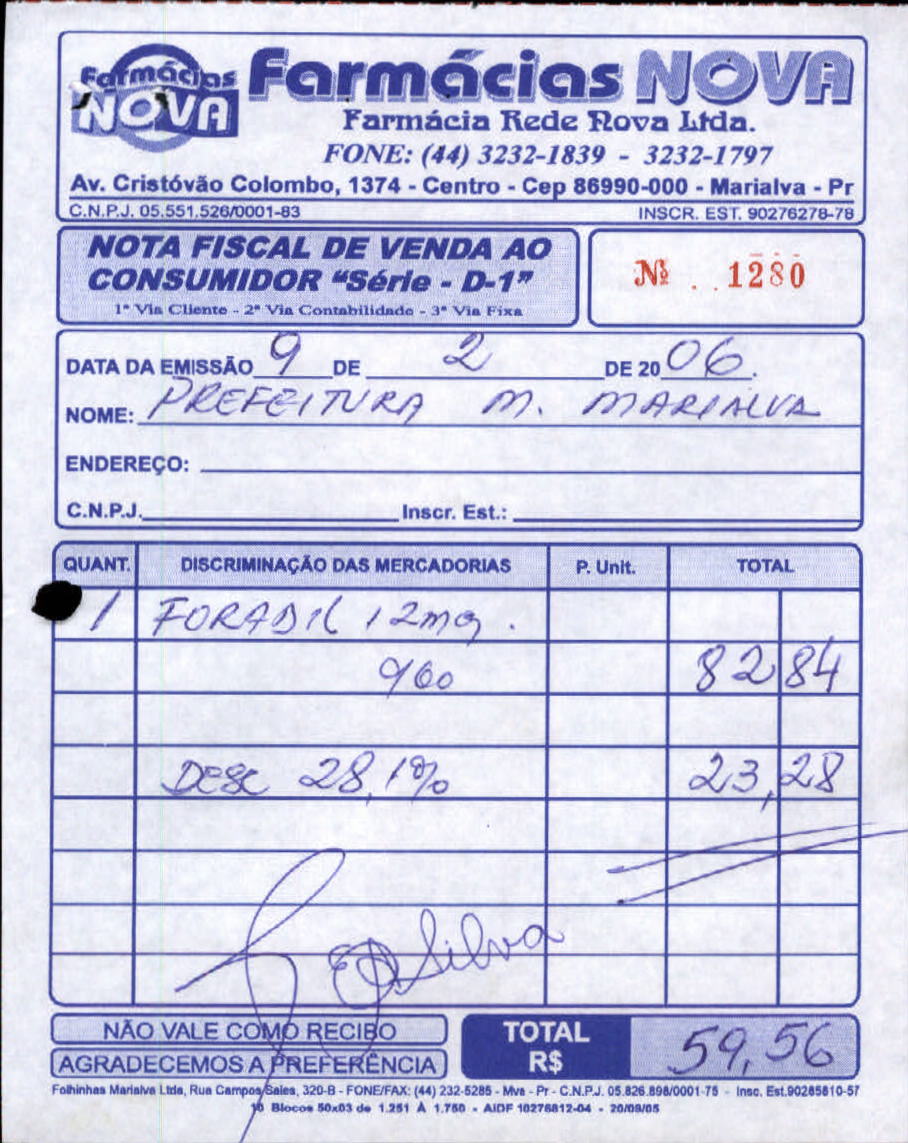 Farmácias NOVA
Farmácias NOVA
Farmácia Rede Nova Ltda.
FONE: (44) 3232-1839 - 3232-1797
Av. Cristóvão Colombo, 1374 - Centro - Cep 86990-000 - Marialva - Pr
C.N.P.J. 05.551.526/0001-83 INSCR. EST. 90276278-78
NOTA FISCAL DE VENDA AO
CONSUMIDOR "Série - D-1"
1ª Via Cliente - 2ª Via Contabilidade - 3ª Via Fixa
Nº 1280
DATA DA EMISSÃO 9 DE 2 DE 2006.
NOME: PREFEITURA M. MARIALVA
ENDEREÇO:
C.N.P.J. Inscr. Est.:
QUANT. DISCRIMINAÇÃO DAS MERCADORIAS P. Unit. TOTAL
1 FORADIL 12mg.
82 84
DESC 28,1% 23,28
Silva
NÃO VALE COMO RECIBO
AGRADECEMOS A PREFERÊNCIA
TOTAL R$ 59,56
Folhinhas Marialva Ltda, Rua Campos Sales, 320-B - FONE/FAX: (44) 232-5285 - Mva - Pr - C.N.P.J. 05.826.898/0001-75 - Insc. Est.90285810-57
10 Blocos 50x03 de 1.251 À 1.750 - AIDF 10276812-04 - 20/09/05